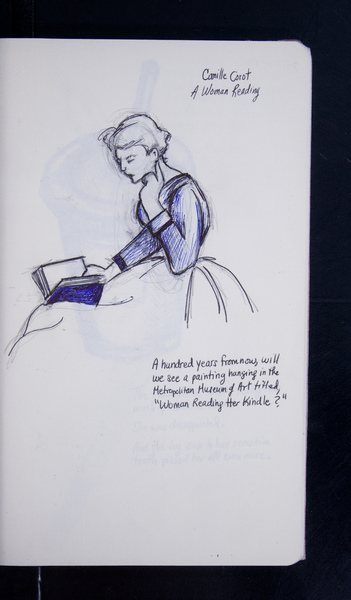 Camille Corot
A Woman Reading
A hundred years from now, will
we see a painting hanging in the
Metropolitan Museum of Art titled,
"Woman Reading Her Kindle?"